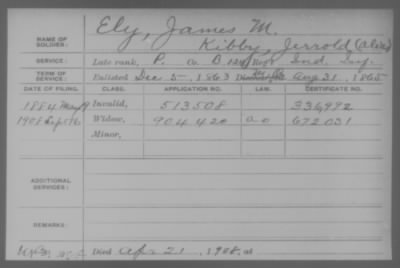 Ely, James M.
NAME OF SOLDIER: Kibby, Jerrold (alias)
SERVICE: Late rank, P. Co. B, 124 Reg't Ind. Inf.
TERM OF SERVICE: Enlisted Dec. 5, 1863 Aug 31, 1865
DATE OF FILING. CLASS. APPLICATION NO. LAW. CERTIFICATE NO.
1884 May 9 Invalid, 513508 336992
1908 Sept Widow, 904420 a o 672031
Minor,
ADDITIONAL SERVICES:
REMARKS:
Died Apr 21, 1908, at